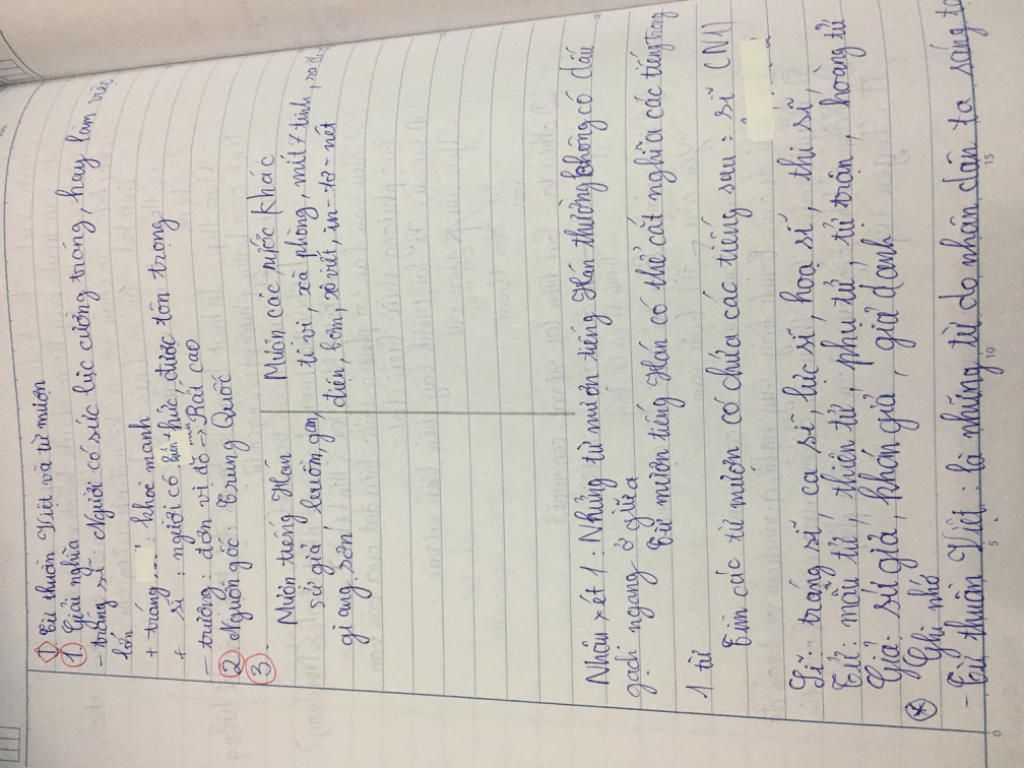 I) Từ thuần Việt và từ mượn
1) Giải nghĩa
- tráng sĩ: Người có sức lực cường tráng, hay làm việc
lớn
+ tráng: khoẻ mạnh
+ sĩ: người có thức, được tôn trọng
- trượng: đơn vị đo → Rất cao
2) Nguồn gốc: Trung Quốc
3)
Mượn tiếng Hán
sứ giả, buồm, gan,
giang sơn
Mượn các nước khác
ti vi, xà phòng, mít tinh, ra-
điện, bơm, xô viết, in-tơ-nét
Nhận xét 1. Những từ mượn tiếng Hán thường không có dấu
gạch ngang ở giữa
Từ mượn tiếng Hán có thể cắt nghĩa các tiếng trong
1 từ
Tìm các từ mượn có chứa các tiếng sau: sĩ (N1)
Sĩ: tráng sĩ, ca sĩ, lực sĩ, hoạ sĩ, thi sĩ,
Tử: mẫu tử, thiên tử, phụ tử, tử trận, hoàng tử
Giả: sứ giả, khán giả, giả danh
* Ghi nhớ
- Từ thuần Việt: là những từ do nhân dân ta sáng tạ
0 5 10 15